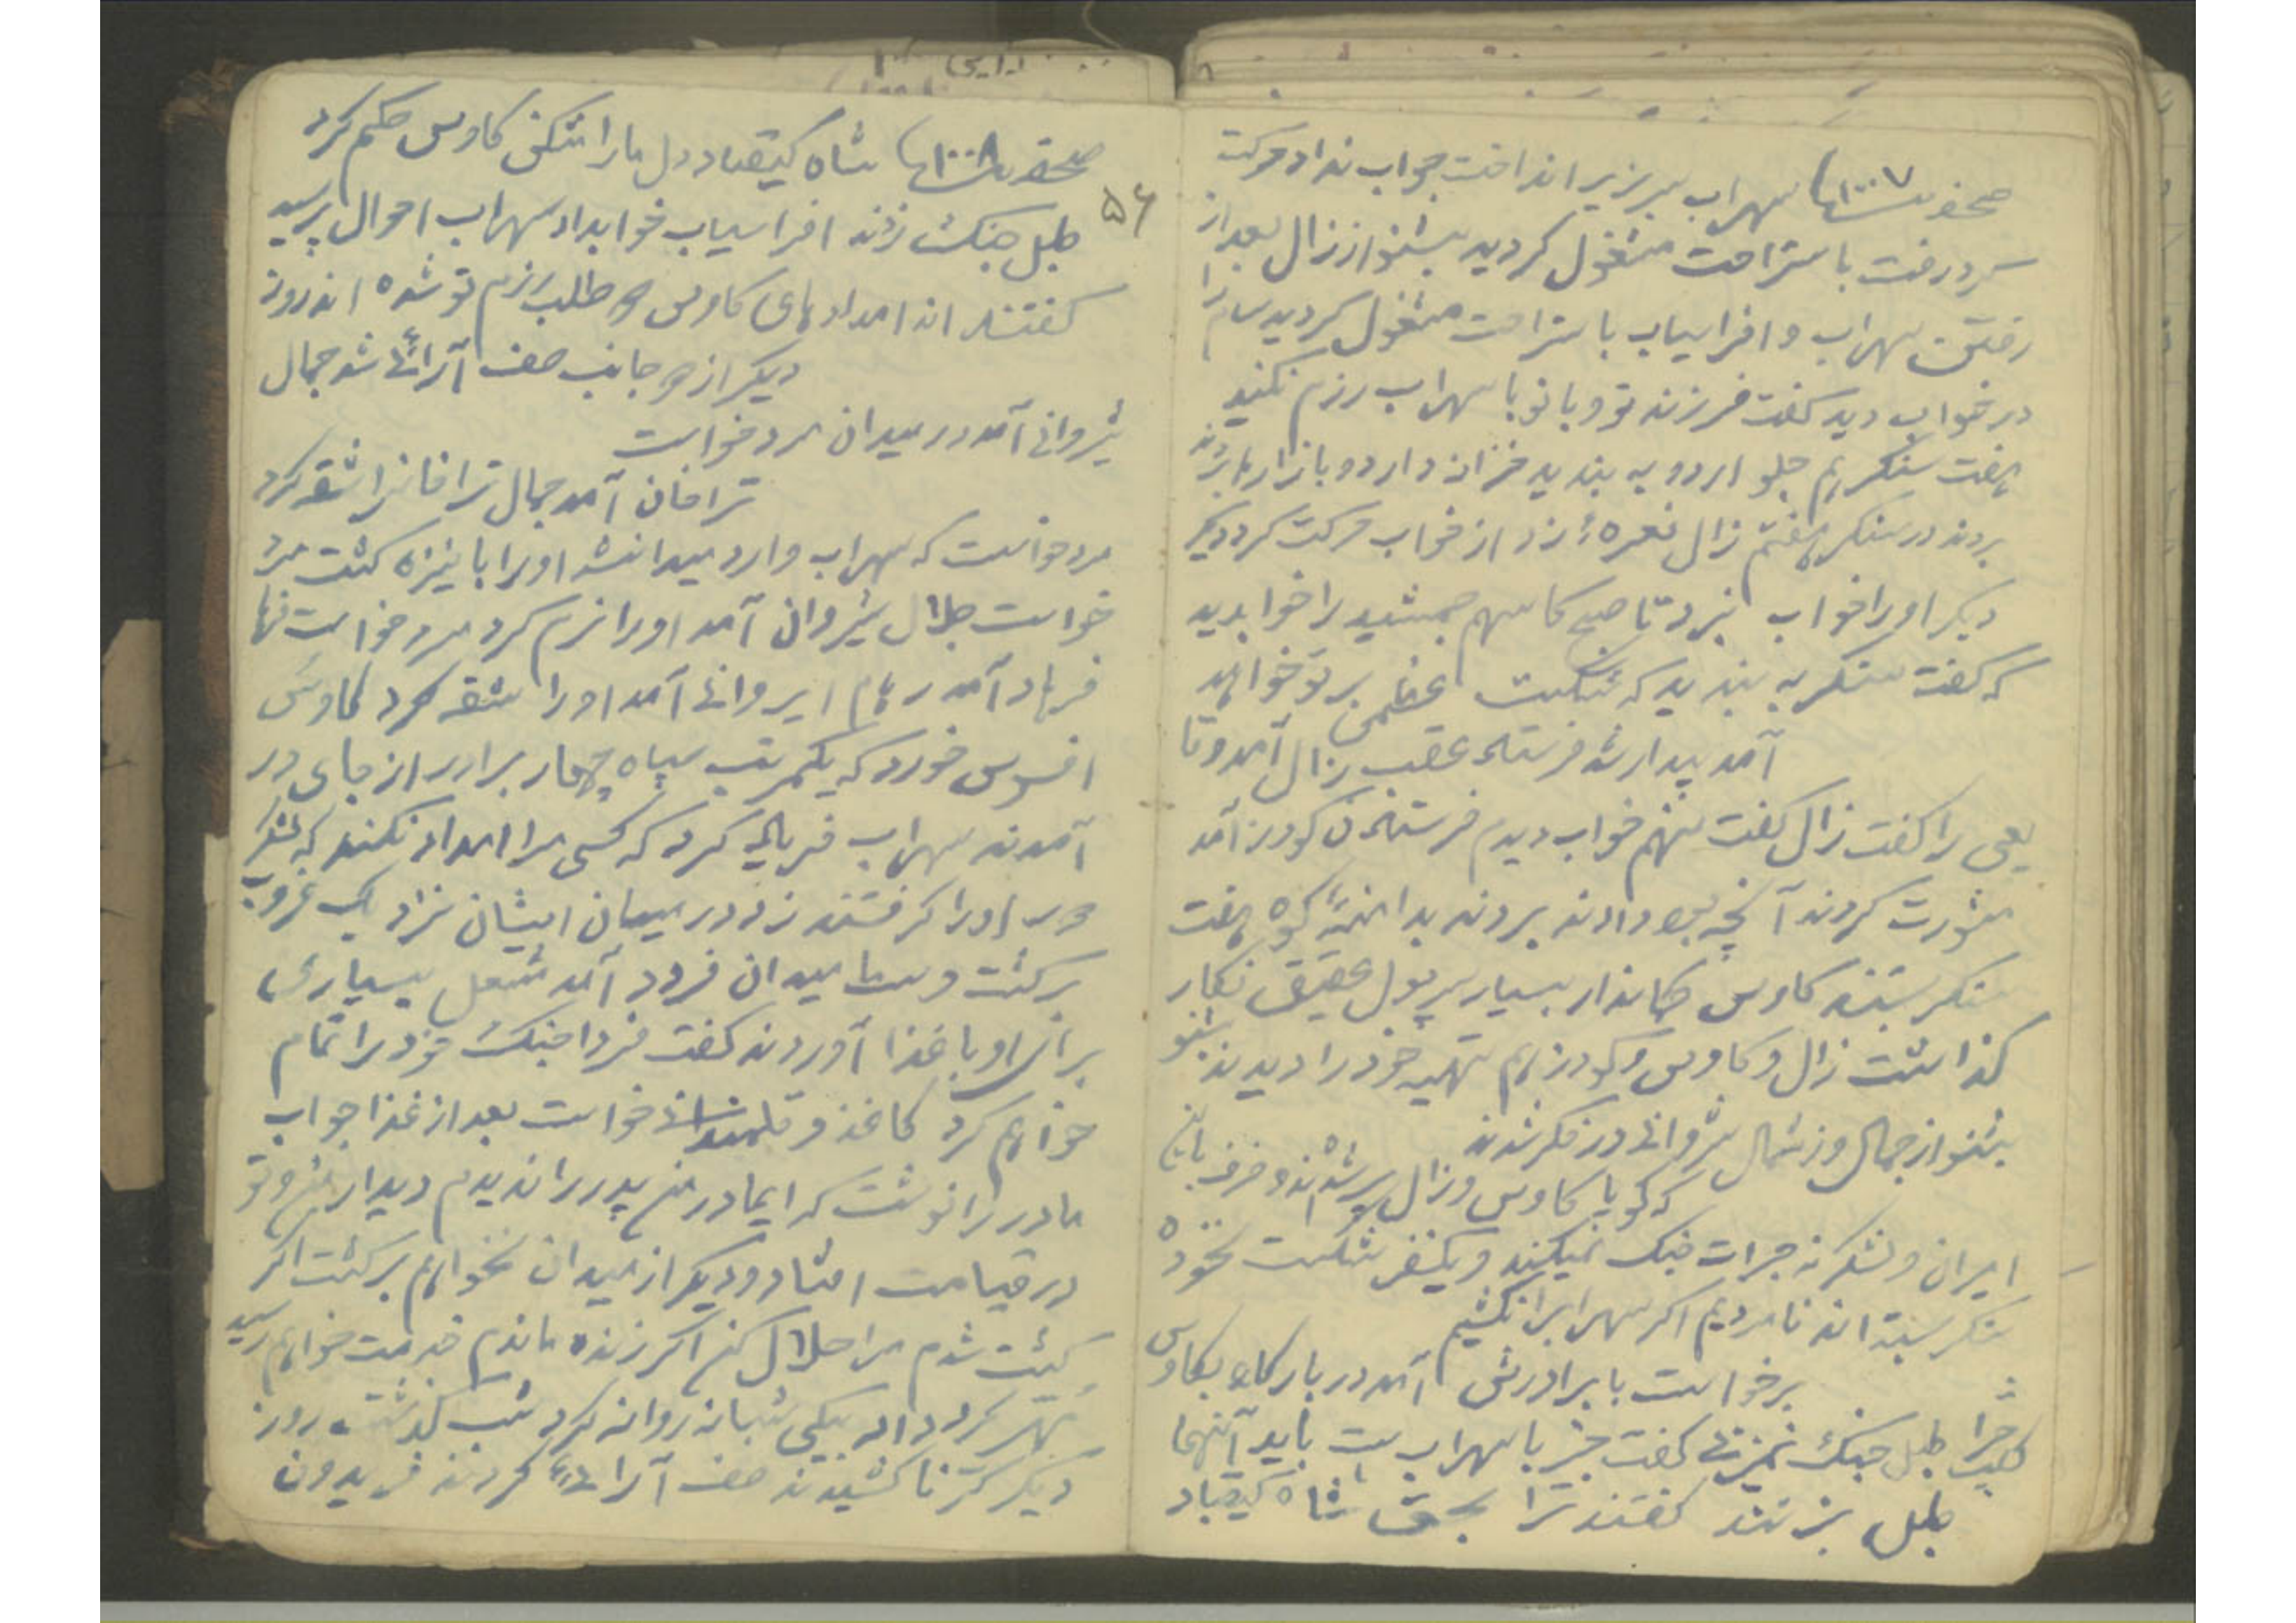 صحفه ۱۰۰۷ سهراب سر بزیر انداخت جواب نداد حرکت
کرد رفت باستراحت مشغول کردید بشنو از زال بعد از
رفتن سهراب و افراسیاب باستراحت مشغول کردید سام را
در خواب دید کفت فرزند تو و بانو با سهراب رزم نکنید
هفت سنکر بهم جلو اردو به بندید خزانه دارد و بازار را
بردند در سنکر هفتم زال نعره زد از خواب حرکت کرد دیکر
دیکر او را خواب نبرد تا صبح کاسهم جمشید را خوابدید
که کفت سنکر به بندید که شکست عظمی بر تو خواهد
آمد بیدار شد فرستاد عقب زال آمد وقا
یعی را کفت زال کفت منهم خواب دیدم فرستادن کودرز آمد
مشورت کردند آنچه بود دادند بردند بدامنهٔ کوه هفت
سنکر بستند کاوس کماندار بسیار سر پول عقیق نکار
کذاشت زال و کاوس و کودرز هم تهیه خود را دیدند بشنو
بشنو از جمال وز شمال شروانی در فکر شدند
که کویا کاوس وزال پیر شده اند و حرف
ایران و لشکر نه جرات جنک نمیکنند و یکنفر شکست نخورده
سنکر بسته اند نامردیم اکر سهرابرا نکشیم
برخواست با برادرش آمد در بارکاه بکاوس
کفت چرا طبل جنک نمیزنی کفت جنک با سهراب است باید آنها
طبل بزنند کفتند ترا بحق شاه کیقباد
۵۶
صحفه ۱۰۰۸ شاه کیقباد دل ما را نشکن کاوس حکم کرد
طبل جنک زدند افراسیاب خوابداد سهراب احوال پرسید
کفتند از امدادهای کاوس طلب رزم تو شده اند روز
دیکر از دو جانب صف آرائی شد جمال
شروانی آمد در میدان مرد خواست
تراخان آمد جمال تراخانرا شقه کرد
مرد خواست که سهراب وارد میدانشد او را با نیزه کشت مرد
خواست جلال شروان آمد او را نرم کرد مرد خواست
فرهاد آمد رهام ایروانی آمد او را شقه کرد کاوس
افسوس خورد که یکمرتبه سپاه چهار برادر از جای در
آمدند سهراب فریاد کرد که کسی مرا امداد نکند که لشکر
دور او را کرفتند زد در میان ایشان نزدیک غروب
برکشت وسط میدان فرود آمد مشعل بسیاری
برای او با غذا آوردند کفت فردا جنک خود را تمام
خواهم کرد کاغذ و قلمدانی خواست بعد از غذا جواب
مادر را نوشت که ایمادر من پدر را ندیدم دیدار من و تو
در قیامت افتاد و دیکر از میدان نخواهم برکشت اکر
کشت شدم مرا حلال کن اکر زنده ماندم خدمت خواهم رسید
مهر کرد داد بیکی شبانه روانه کرد شب کذشت روز
دیکر کرنا کشیدند صف آرائی کردند فریدون